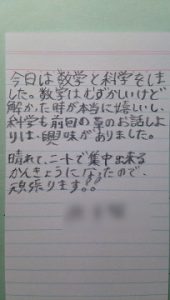 今日は数学と科学をしま
した。数学はむずかしいけど
解かった時が本当に嬉しいし、
科学も前回の草のお話しよ
りは、興味がありました。
晴れて、ニートで集中出来る
かんきょうになるので、
頑張ります!!